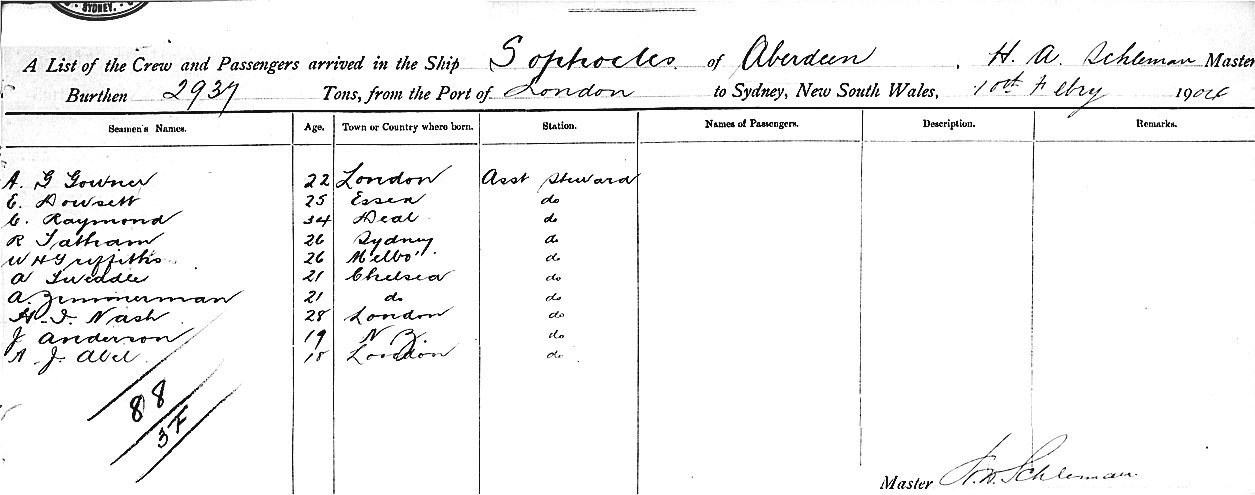 SYDNEY.
A List of the Crew and Passengers arrived in the Ship Sophocles of Aberdeen, H. A. Schleman Master
Burthen 2937 Tons, from the Port of London to Sydney, New South Wales, 10th Febry 190
Seamen's Names. Age. Town or Country where born. Station. Names of Passengers. Description. Remarks.
A. G Gowner 22 London Asst Steward
E. Dowsett 25 Essex do
C. Raymond 34 Deal do
R Tatham 26 Sydney do
W H Griffiths 26 Melbo' do
A Tweddle 21 Chelsea do
A. Zimmerman 21 do do
H. I. Nash 28 London do
J Anderson 19 N Z. do
A J. Abel 18 London do
88
3F
Master Schleman